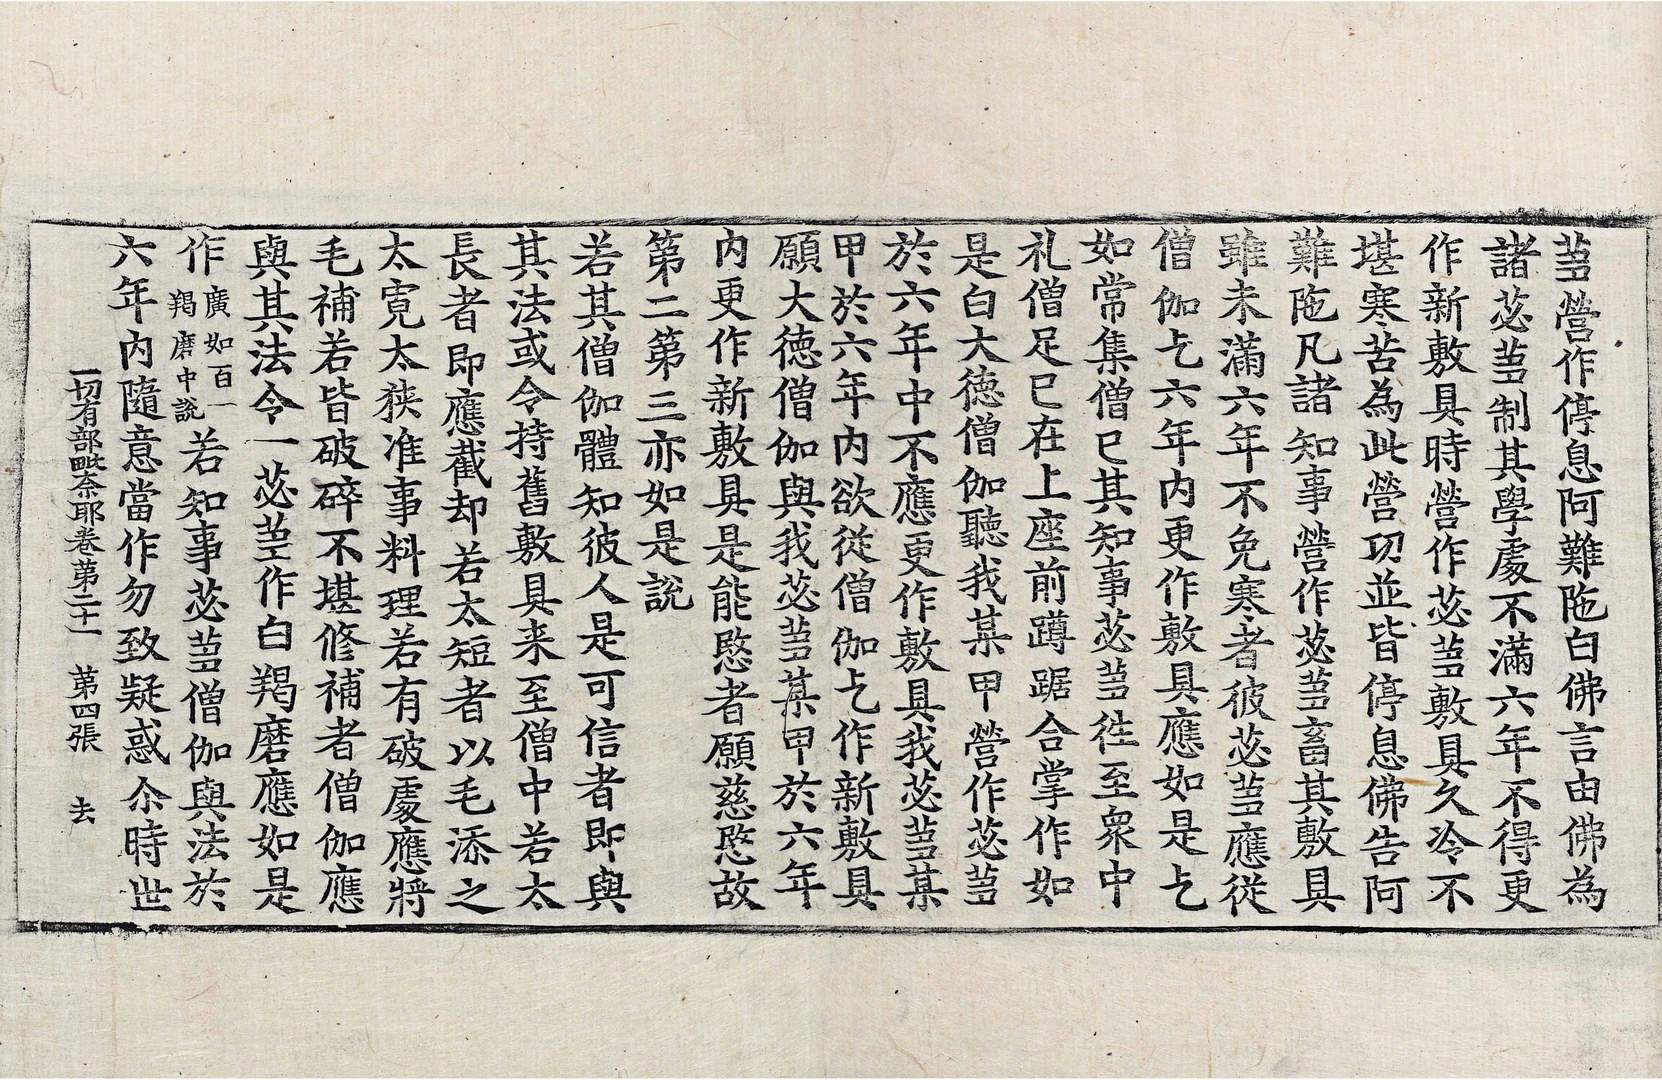 蒭營作停息阿難陁白佛言由佛為
諸苾蒭制其學處不滿六年不得更
作新敷具時營作苾蒭敷具久冷不
堪寒苦為此營功並皆停息佛告阿
難陁凡諸知事營作苾蒭畜其敷具
雖未滿六年不免寒者彼苾蒭應從
僧伽乞六年內更作敷具應如是乞
如常集僧已其知事苾蒭往至衆中
礼僧足已在上座前蹲踞合掌作如
是白大德僧伽聽我某甲營作苾蒭
於六年中不應更作敷具我苾蒭某
甲於六年內欲從僧伽乞作新敷具
願大德僧伽與我苾蒭某甲於六年
內更作新敷具是能愍者願慈愍故
第二第三亦如是說
若其僧伽體知彼人是可信者即與
其法或令持舊敷具来至僧中若太
長者即應截却若太短者以毛添之
太寬太狹准事料理若有破處應將
毛補若皆破碎不堪修補者僧伽應
與其法令一苾蒭作白羯磨應如是
作廣如百一羯磨中說若知事苾蒭僧伽與法於
六年內隨意當作勿致疑惑尒時世
一切有部毗奈耶卷第二十一 第四張 去